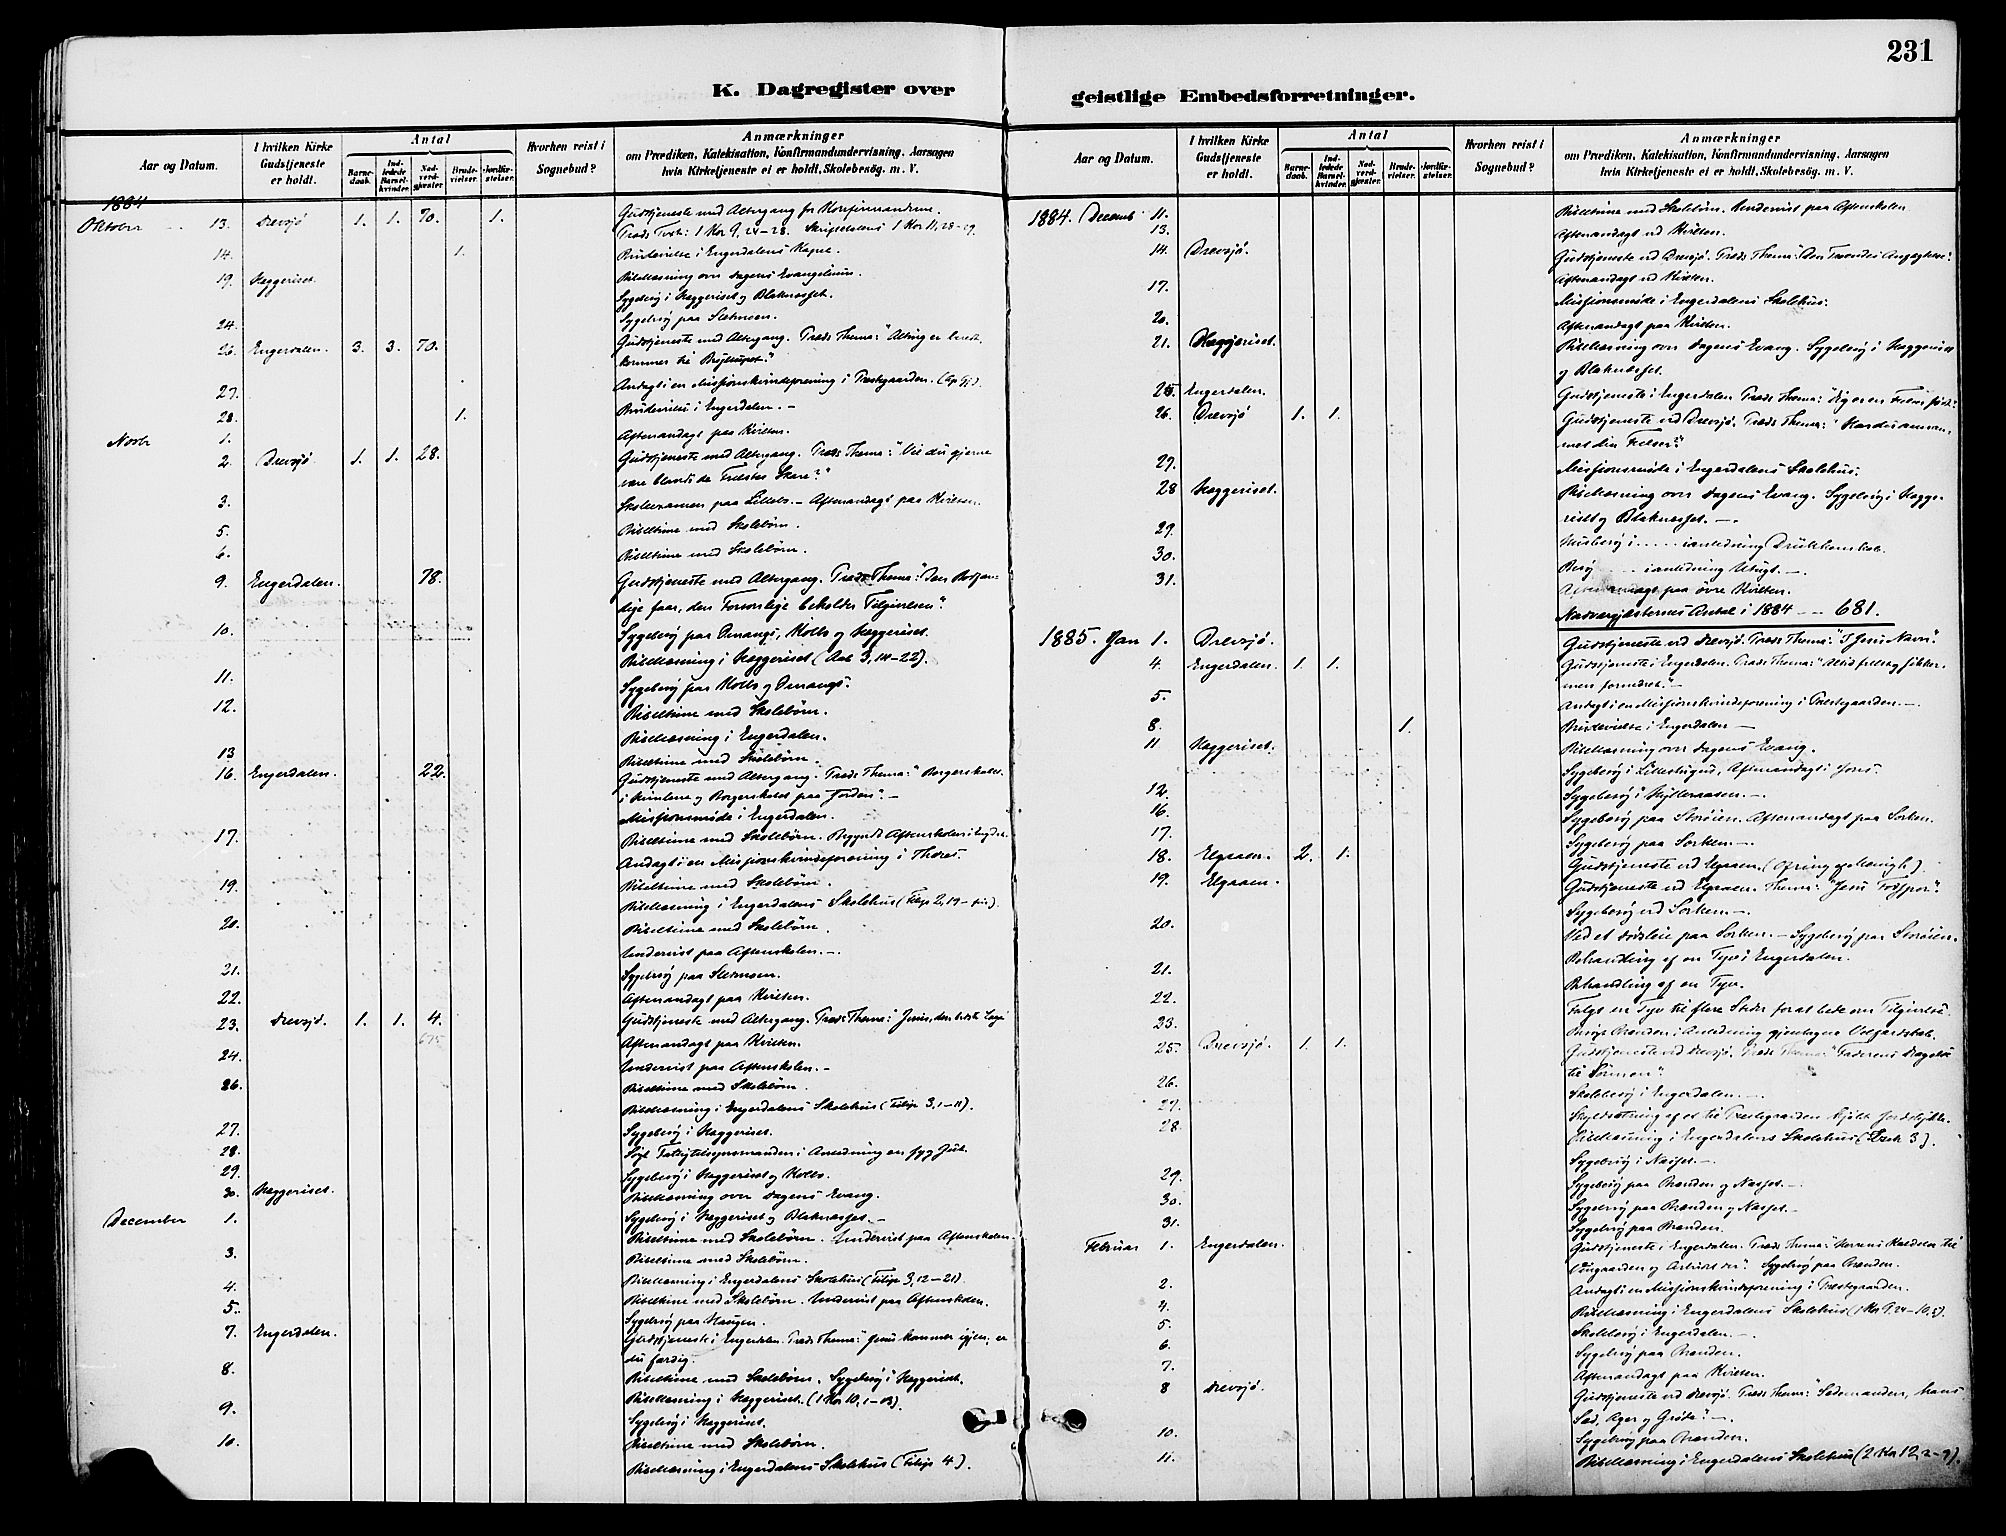 231
K. Dagregister over geistlige Embedsforretninger.
Aar og Datum. I hvilken Kirke Gudstjeneste er holdt. Antal Barnedaab. Indledede Barselkvinder. Nadverdgjæster Brudevielser. Jordfæstelser. Hvorhen reist i Sognebud? Anmærkninger om Prædiken, Katekisation, Konfirmandundervisning. Aarsagen hvis Kirketjeneste ei er holdt, Skolebesøg. m. V.
1884
Oktober 13. Drevsjø 1. 1. 70. 1. Gudstjeneste med Altergang for Konfirmanderne.
Præds Text: 1 Kor 9, 24-28. Skriftetalens 1 Kor 11, 28-29.
14. 1. Brudevielse i Engerdalens Kapel.
19. Hæggeriset. Bibellæsning over Dagens Evangelium.
Sygebesøg i Hæggeriset og Blaknæsset.
24. Sygebesøg paa Sletmoen.
26. Engerdalen. 3. 3. 70. Gudstjeneste med Altergang. Præds Thema: "Alting er beredt,
kommer til Bryllupet."
27. Andagt i en Missionskvindeforening i Præstegaarden. (Ap Gj).
28. 1. Brudevielse i Engerdalen. -
Novbr 1. Aftenandagt paa Kvilten.
2. Drevsjø. 1. 1. 28. Gudstjeneste med Altergang. Præds Thema: "Vil du gjerne
være blandt de Frelstes Skare?"
3. Skoleexamen paa Lillebo. - Aftenandagt paa Kvilten.
5. Bibeltime med Skolebørn.
6. Bibeltime med Skolebørn.
9. Engerdalen. 78. Gudstjeneste med Altergang. Præds Thema: "Den Botfærdige
faar, den Forsonlige beholder Tilgivelsen".
10. Sygebesøg paa Hollo og Hæggeriset.
Bibellæsning i Hæggeriset (Aab 3, 14-22).
11. Sygebesøg paa Hollo og
12. Bibeltime med Skolebørn.
Bibellæsning i Engerdalen.
13 Bibeltime med Skolebørn.
16. Engerdalen. 22. Gudstjeneste med Altergang. Præds Thema: "Borgerskabet
i Himlene og Borgerskabet paa Jorden". -
Missionsmøde i Engerdalen.
17. Bibeltime med Skolebørn. Begyndt Aftenskolen i Engdal.
Andagt i en Missionskvindeforening i
19. Bibeltime med Skolebørn.
Bibellæsning i Engerdalens Skolehus (Filip 2, 19 - fin).
20. Bibeltime med Skolebørn.
Undervist paa Aftenskolen. -
21. Sygebesøg paa Sletmoen.
22. Aftenandagt paa Kvilten.
23. Drevsjø. 1. 1. 4. Gudstjeneste med Altergang. Præds Thema: "Jesus, den bedste
675. Aftenandagt paa Kvilten.
24. Undervist paa Aftenskolen. -
26. Bibeltime med Skolebørn.
Bibellæsning i Engerdalens Skolehus (Filip 3, 1-11).
27. Sygebesøg i Hæggeriset.
28. Søgt Fattigtilsynsmanden i Anledning en syg
29. Sygebesøg i Hæggeriset og Hollo.
30. Hæggeriset. Bibellæsning over Dagens Evang.
Sygebesøg i Hæggeriset og Blaknæsset. -
December 1. Bibeltime med Skolebørn. Undervist paa Aftenskolen.
3. Bibeltime med Skolebørn.
Bibellæsning i Engerdalens Skolehus (Filip 3, 12-21).
4. Bibeltime med Skolebørn. Undervist paa Aftenskolen.
5. Sygebesøg paa Haugen.
7. Engerdalen. Gudstjeneste i Engerdalen. Præds Thema: "Jesus kommer igjen; er
du færdig.
8. Bibeltime med Skolebørn. Sygebesøg i Hæggeriset.
Bibellæsning i Hæggeriset. (1 Kor 10, 1-13).
9. Sygebesøg i Hæggeriset.
10. Bibeltime med Skolebørn.
Bibellæsning i Engerdalens Skolehus (Filip 4).
Aar og Datum. I hvilken Kirke Gudstjeneste er holdt. Antal Barnedaab. Indledede Barselkvinder. Nadverdgjæster. Brudevielser. Jordfæstelser. Hvorhen reist i Sognebud? Anmærkninger om Prædiken, Katekisation, Konfirmandundervisning. Aarsagen hvis Kirketjeneste ei er holdt, Skolebesøg. m. V.
1884. Decemb 11. Bibeltime med Skolebørn. Undervist paa Aftenskolen
13. Aftenandagt ved Kvilten.
14. Drevsjø. Gudstjeneste ved Drevsjø. Præds Thema:
Aftenandagt ved Kvilten.
17. Missionsmøde i Engerdalens Skolehus.
20. Aftenandagt paa Kvilten.
21. Hæggeriset. Bibellæsning over Dagens Evang. Sygebesøg i Hæggeriset
og Blaknesset.
25. Engerdalen. Gudstjeneste i Engerdalen Præds Thema: "Eder er Frelser født."
26. Drevsjø 1. 1. Gudstjeneste ved Drevsjø. Præds Thema: "Har du
mod din Frelser?"
27. Missionsmøde i Engerdalens Skolehus.
28 Hæggeriset. Bibellæsning over Dagens Evang. Sygebesøg i Hæggeriset
og Blaknæsset. -
29. Husbesøg i ..... i anledning Drukkenskab.
30. Besøg ..... i anledning Utugt. -
31. Aftenandagt paa øvre Kvilten.
Nadvergjæsternes Antal i 1884 -- 681.
1885. Jan 1. Drevsjø. Gudstjeneste ved Drevsjø. Præds Thema: "I Jesu Navn".
4. Engerdalen. 1. 1. Gudstjeneste i Engerdalen. Præds Thema:
5. Andagt i en Missionskvindeforening i Præstegaarden. -
8. 1. Brudevielse i Engerdalen -
11 Hæggeriset. Bibellæsning over Dagens Evang.
Sygebesøg i Lillestugud, Aftenandagt i
12. Sygebesøg i Hylleraasen. -
16. Sygebesøg paa Storøien. Aftenandagt paa Sorken.
17. Sygebesøg paa Sorken. -
18. Elgaaen. 2. 1. Gudstjeneste ved Elgaaen.
19. Elgaaen. Gudstjeneste ved Elgaaen. Thema: "Jesu Fodspor".
Sygebesøg ved Sorken -.
20. Ved et Dødsleie paa Sorken. - Sygebesøg paa Storøien.
Behandling af en Tyv i Engerdalen.
21. Behandling af en Tyv.
22. Fulgt en Tyv til flere Steder for at bede om Tilgivelse.
23. Besøgt Brænden i Anledning
25. Drevsjø. 1. 1. Gudstjeneste ved Drevsjø. Præds Thema: "Faderens Dragelse
til Sønnen".
26. Skolebesøg i Engerdalen. -
27. Skyldsætning af et til Præstegaarden kjøbt Jordstykke.
28. Bibellæsning i Engerdalens Skolehus
Sygebesøg i Næsset. -
29. Sygebesøg paa Brænden og Næsset. -
30. Sygebesøg paa Brænden og Næsset. -
31. Sygebesøg paa Brænden.
Februar 1. Engerdalen. Gudstjeneste i Engerdalen. Præds Thema: "Herrens Kaldelse til
Viingaarden og Arbeidet der". Sygebesøg paa Brænden.
2. Andagt i en Missionskvindeforening i Præstegaarden.
4. Bibellæsning i Engerdalens Skolehus (1 Kor 9, 24 - 10, 5).
5. Skolebesøg i Engerdalen. -
6. Sygebesøg paa Brænden.
7. Aftenandagt paa Kvilten.
8 Drevsjø. Gudstjeneste ved Drevsjø. Præds Thema: "Sædemanden, hans
Sæd, Ager og Grøde". -
10. Sygebesøg paa Brænden.
11. Bibellæsning i Engerdalens Skolehus (2 Kor 12, 2-9).